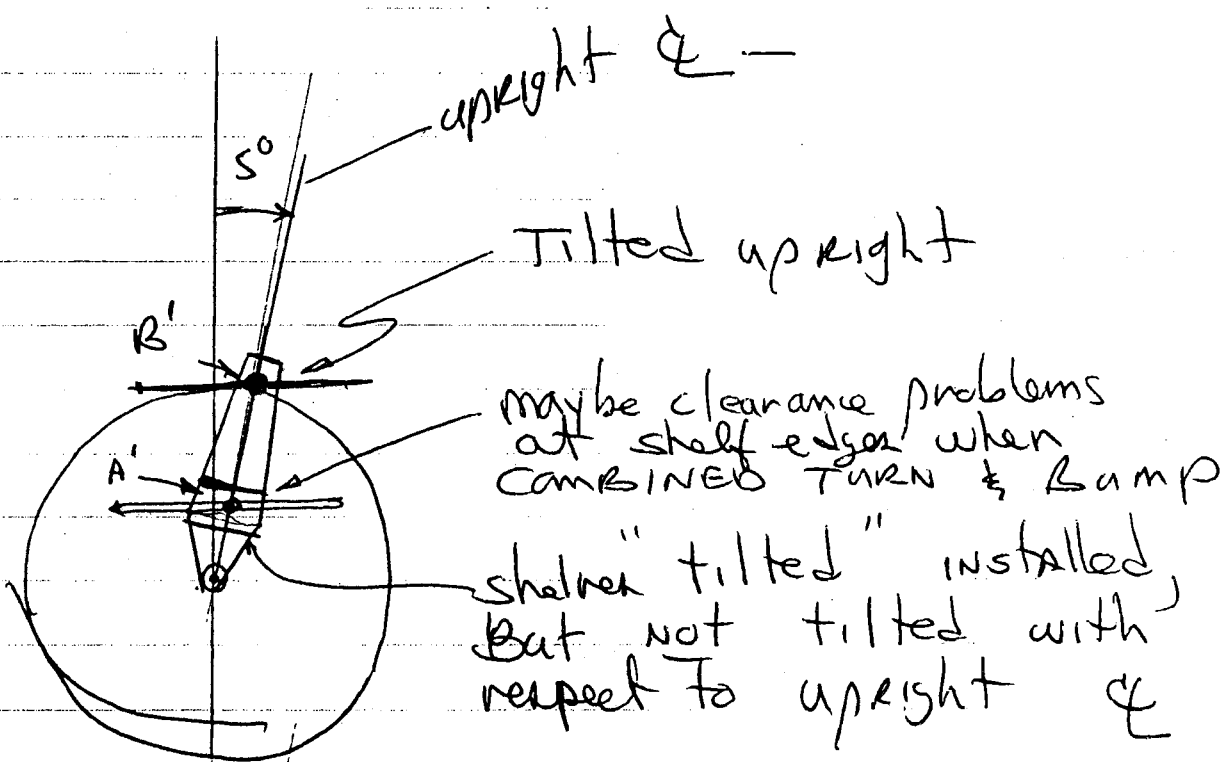 upright ℄ —
5°
Tilted upright
B'
maybe clearance problems
at shelf edges when
COMBINED TURN & Bump
A'
shelves "tilted" installed,
But NOT tilted with
respect To upright ℄